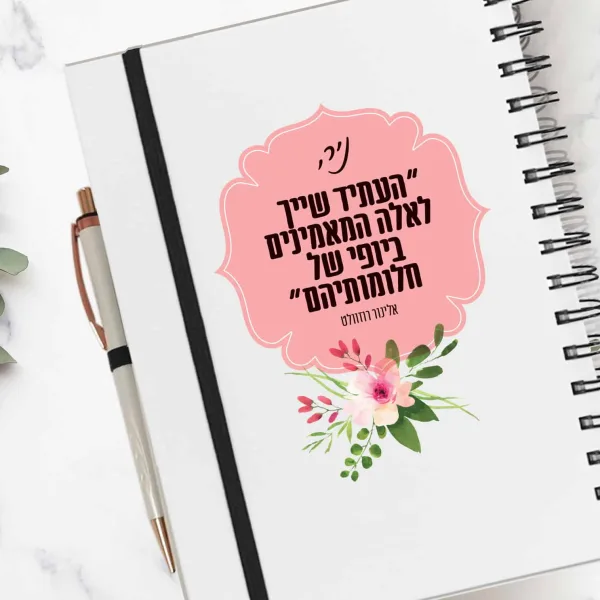 ניה,
"העתיד שייך
לאלה המאמינים
ביופי של
חלומותיהם"
אלינור רוזוולט